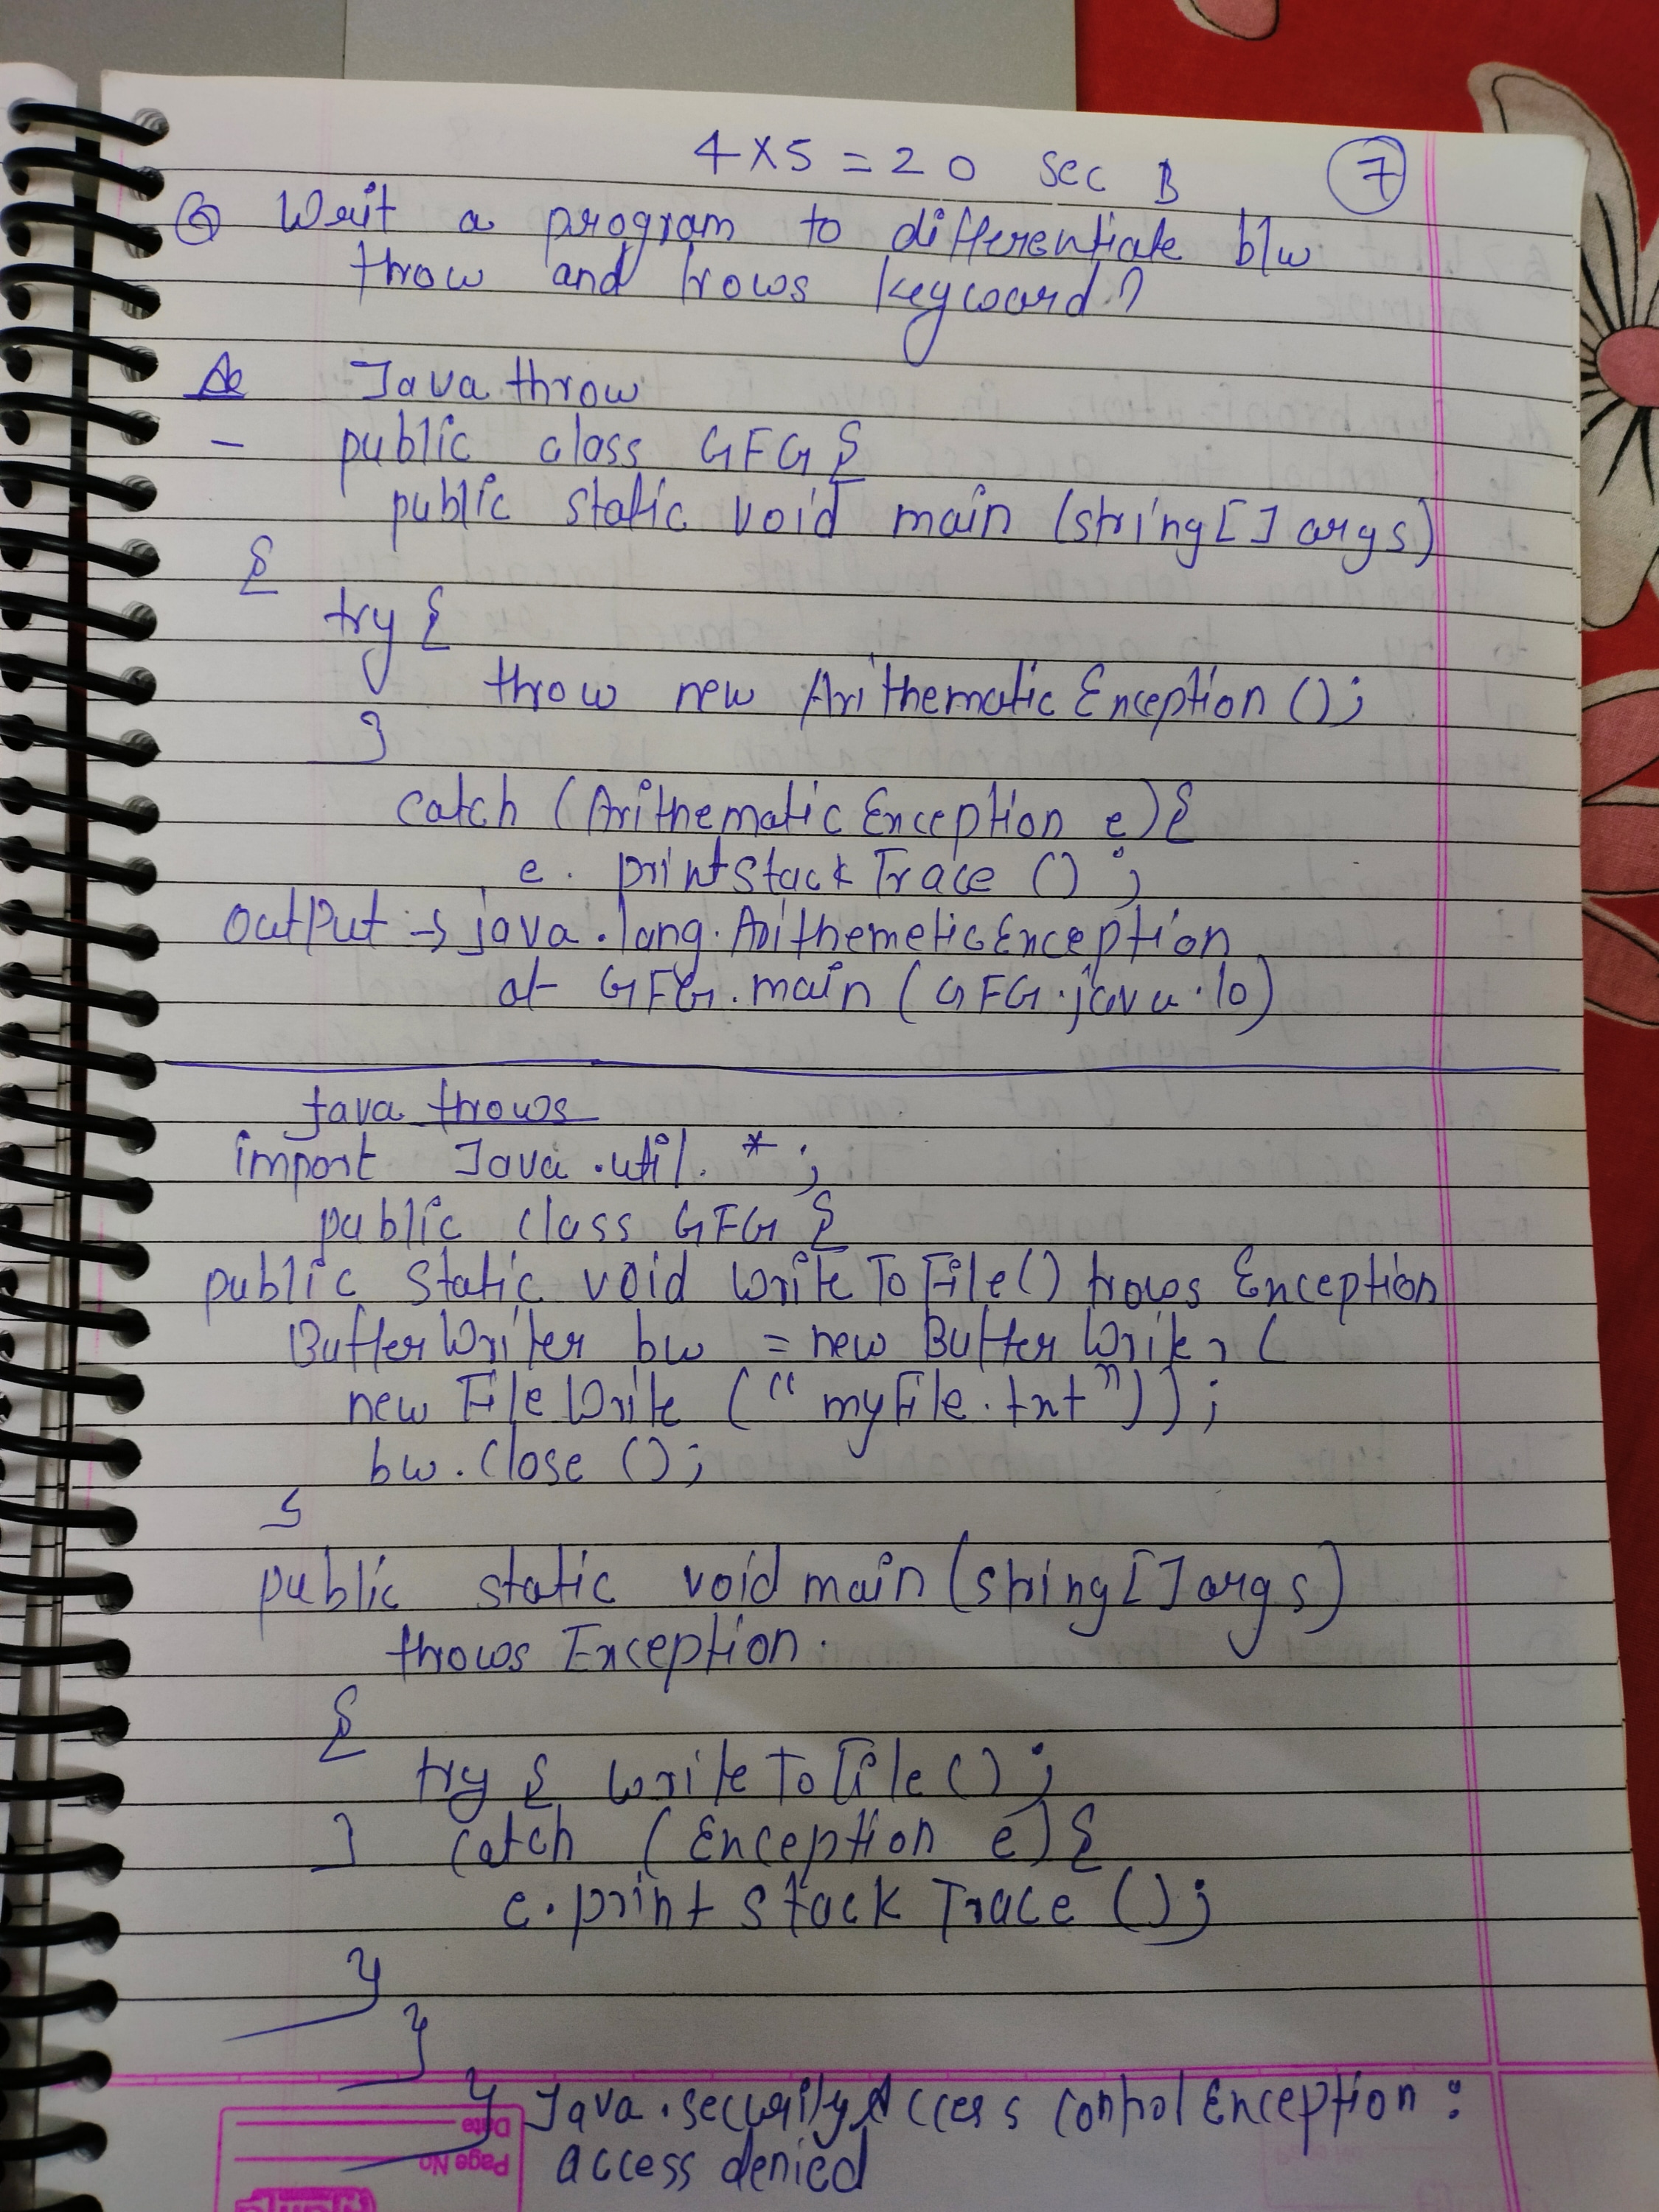 4 x 5 = 20 sec B 7
Q Writ a program to differentiate b/w
throw and trows keyword?
As Java throw
- public class GFG {
public static void main (string[] args)
{
try {
throw new ArithematicException ();
}
catch (ArithematicException e) {
e. printStackTrace () ;
output → java.lang.ArithemeticException
at GFG.main (GFG.java.10)
Java throws
import Java.util. * ;
public class GFG {
public static void WriteToFile() trows Exception
BufferWriter bw = new BufferWriter (
new FileWrite ("myFile.txt"));
bw.close ();
}
public static void main (string[] args)
throws Exception.
{
try { writeToFile () ;
} catch (Exception e) {
e.print Stack Trace () ;
}
}
} Java.security Access Control Exception :
access denied
Date
Page No